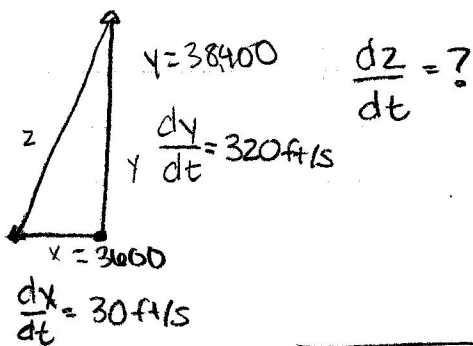 y=38400
dz/dt = ?
z
y
dy/dt = 320ft/s
x = 3600
dx/dt = 30ft/s